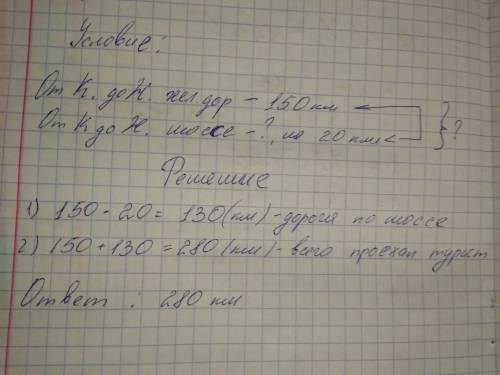 Условие:
От К. до Н. жел.дор – 150 км
От К до Н. шоссе – ?, на 20 км < } ?
Решение
1) 150 - 20 = 130 (км) - дорога по шоссе
2) 150 + 130 = 280 (км) - всего проехал турист
Ответ : 280 км